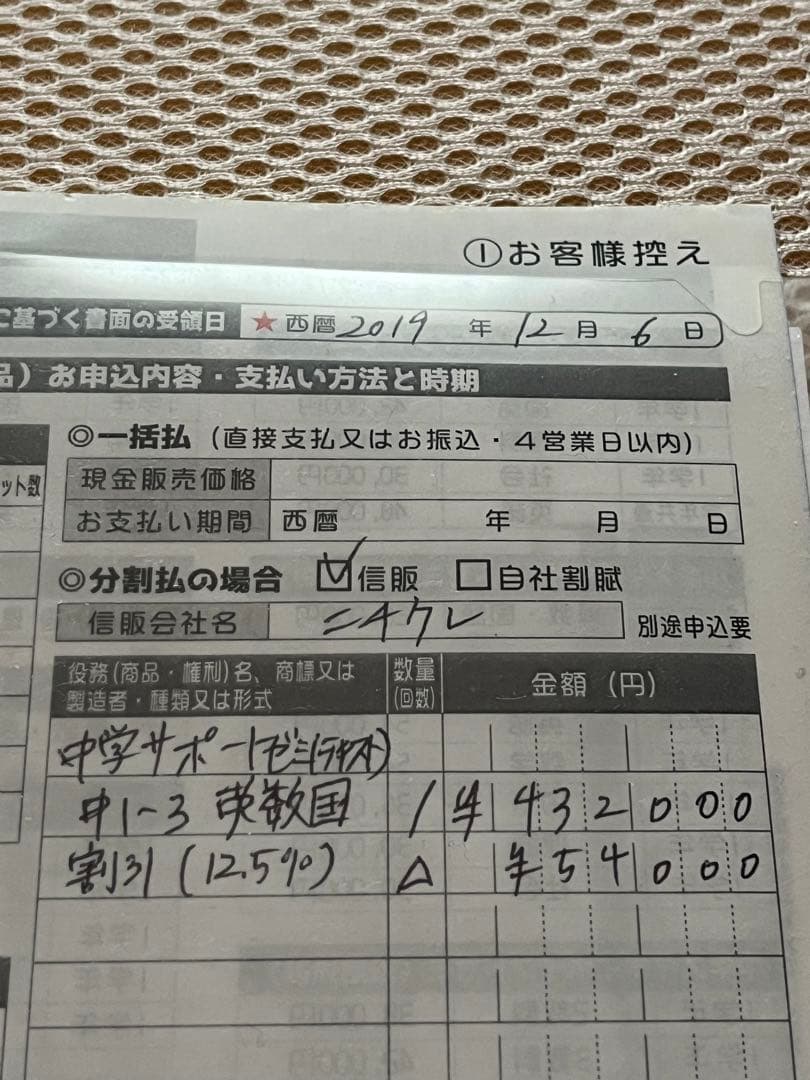 ①お客様控え
に基づく書面の受領日 ★西暦 2019 年 12 月 6 日
品）お申込内容・支払い方法と時期
◎一括払（直接支払又はお振込・4営業日以内）
ット数
現金販売価格
お支払い期間 西暦 年 月 日
◎分割払の場合 ☑信販 □自社割賦
信販会社名 ニチクレ 別途申込要
役務(商品・権利)名、商標又は 数量 金額（円）
製造者・種類又は形式 (回数)
中学サポートゼミ(テキスト)
中1~3 英数国 1 ¥432000
割引(12.5%) △ ¥54000